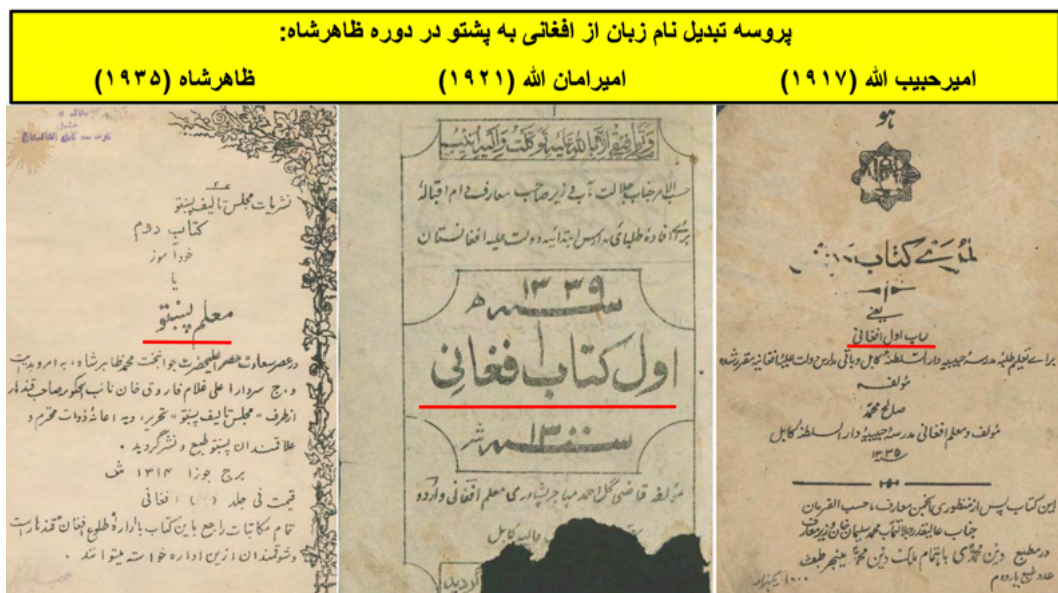 پروسه تبدیل نام زبان از افغانی به پشتو در دوره ظاهرشاه:
امیرحبیب الله (۱۹۱۷)
امیرامان الله (۱۹۲۱)
ظاهرشاه (۱۹۳۵)
هو
کتاب
یعنی
کتاب اول افغانی
برای تعلیم طلبه مدرسهٔ حبیبیه دار السلطنهٔ کابل و باقی مدارس دولت علیهٔ افغانیه مقرر شده
مؤلفه
صالح محمد
مؤلف و معلم افغانی مدرسهٔ حبیبیه دار السلطنهٔ کابل
۱۳۳۵
این کتاب پس از منظوری انجمن معارف، حسب الفرمان
جناب محمد سلیمان خان وزیر معارف
در مطبع دین محمدی باهتمام ملک دین محمد منیجر طبع شد
۱۰۰۰
وما توفیقی الا بالله علیه توکلت والیه انیب
حسب الامر جناب جلالت مآب وزیر صاحب معارف دام اقباله
برای افادهٔ طلبای مدارس ابتدائیه دولت علیه افغانستان
سنه ۱۳۳۹ ھ
اول کتاب افغانی
سنه ۱۳۰۰ ش
مؤلفه قاضی گل احمد مهاجر پشاوری معلم افغانی و اردو
عالیه کابل
گردید
نشریات مجلس تالیف پښتو
کتاب دوم
خود آموز
یا
معلم پښتو
در عصر سعادت حصر اعلیحضرت جوانبخت محمد ظاهر شاه، به امر و هدایت
و، ج سردار اعلی غلام فاروق خان نائب الحکومه صاحب قندهار
از طرف «مجلس تالیف پښتو» تحریر، و به اعانهٔ ذوات محترم و
علاقمندان پښتو طبع و نشر گردید.
برج جوزا ۱۳۱۴ ش
قیمت فی جلد افغانی
تمام مکاتبات راجع باین کتاب باداره طلوع افغان قندهار است
وشوقمندان ازین اداره خواسته میتوانند.